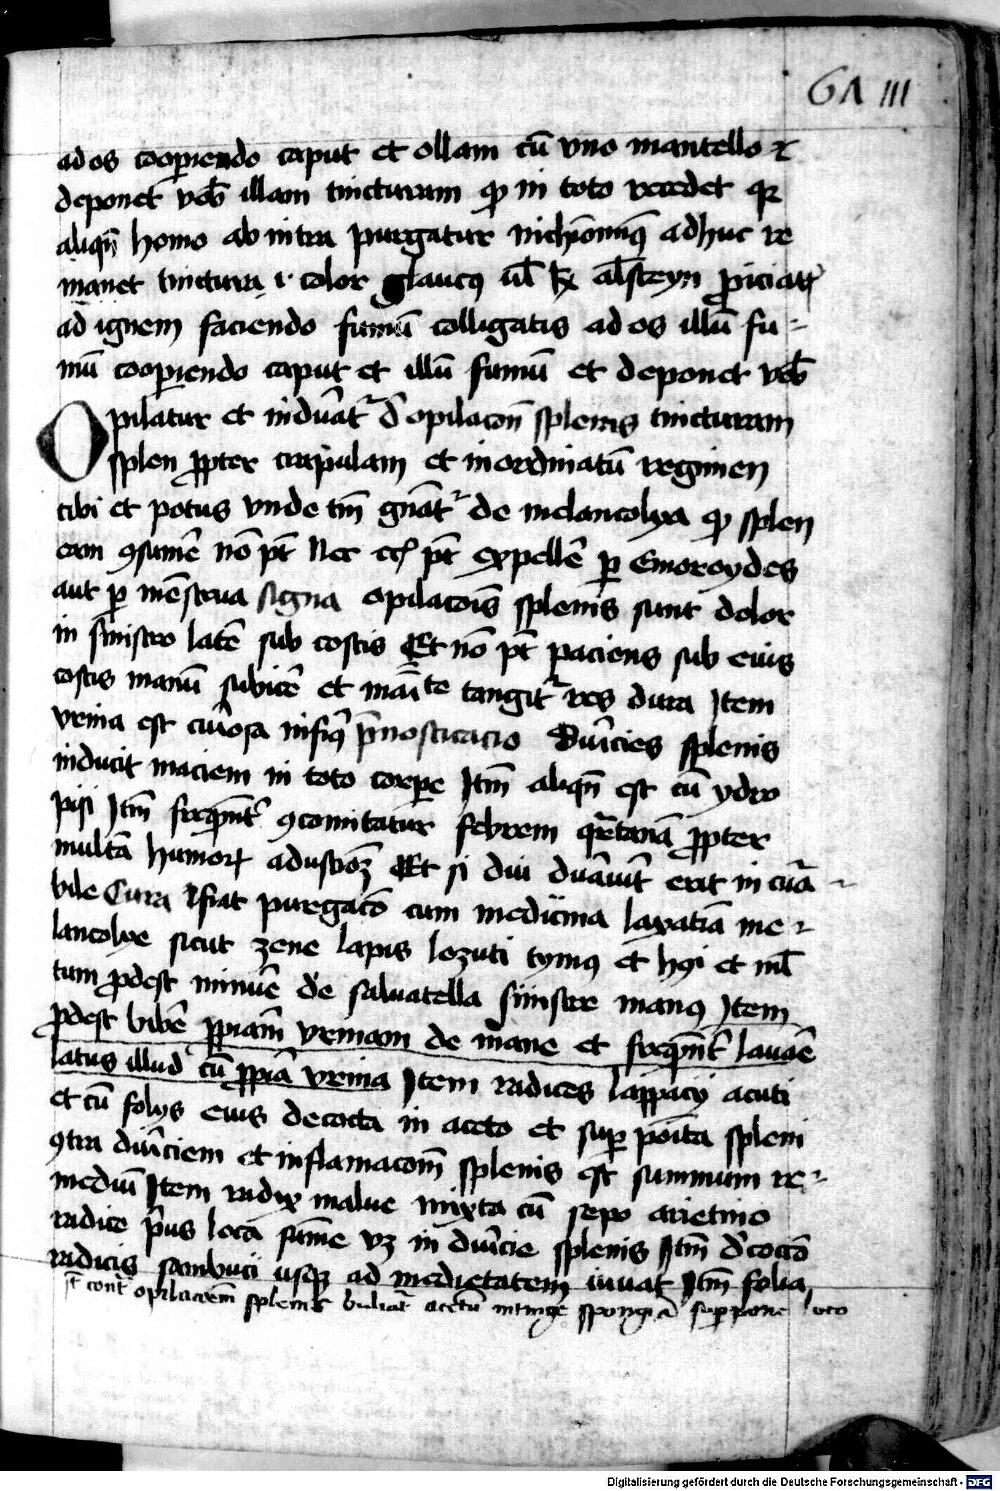 GA III
ad os cooperiendo caput et ollam cū vno mantello ⁊
deponet vobꝫ illam tincturam qꝫ in toto recedet qꝫ
aliqn̄ homo ab intra purgatur nichōminꝫ adhuc re
manet tinctura .i. color glaucꝫ ul̄ Rx alsteyn piciatr
ad ignem faciendo fumū colligatis ad os illū fu-
mū cooperiendo caput et illū fumū et deponet vobꝫ
Opilatur et indurātr d opilacōn splenis tincturam
splen ꝓpter crapulam et inordinatū regimen
cibi et potus vnde tm̄ gn̄atr de melancolya qꝫ splen
eam ꝯsumē nō pt̄ Nec eā pt̄ expellē ꝑ Emoroydes
aut ꝑ mēstrua signa opilacōis splenis sunt dolor
in sinistro latē sub costis Et nō pt̄ paciens sub eius
costis manū subicē et manīte tangitr res dura Item
vrina est cinosa infiqꝫ p̄nosticacio Duricies splenis
inducit maciem in toto corpe Itm̄ aliqn̄ est cū ydro
pisi Itm̄ frequntr ꝯcomitatur febrem qrtanā ꝓpter
multā humorꝝ adustioꝫ Et si diu durauit erit in cura-
bile Cura fiat purgacō cum medicina laxatia me-
lancolye sicut zene lapis lozuti tymꝯ et hꝯi et ml̄
tum ꝓdest minuē de saluatella sinistre manꝯ Item
ꝓdest bibē ꝓpriam vrinam de mane et frequntr lauaē
latus illud cū ꝓpria vrina Item radices lappacij acuti
et cū folijs eius decocta in aceto et suꝑ poīta spleni
ꝯtra duriciem et inflamacōm splenis est summum re-
mediū Item radix malue mixta cū sepo arietino
radice pꝰus loca sume vꝫ in duricie splenis Itm̄ dcoctō
radicis sambuci usqꝫ ad medietatem iuuat Itm̄ folia
It cont opilacoēm splenis buliat acetū intinge spongiā suppone loco
Digitalisierung gefördert durch die Deutsche Forschungsgemeinschaft - DFG